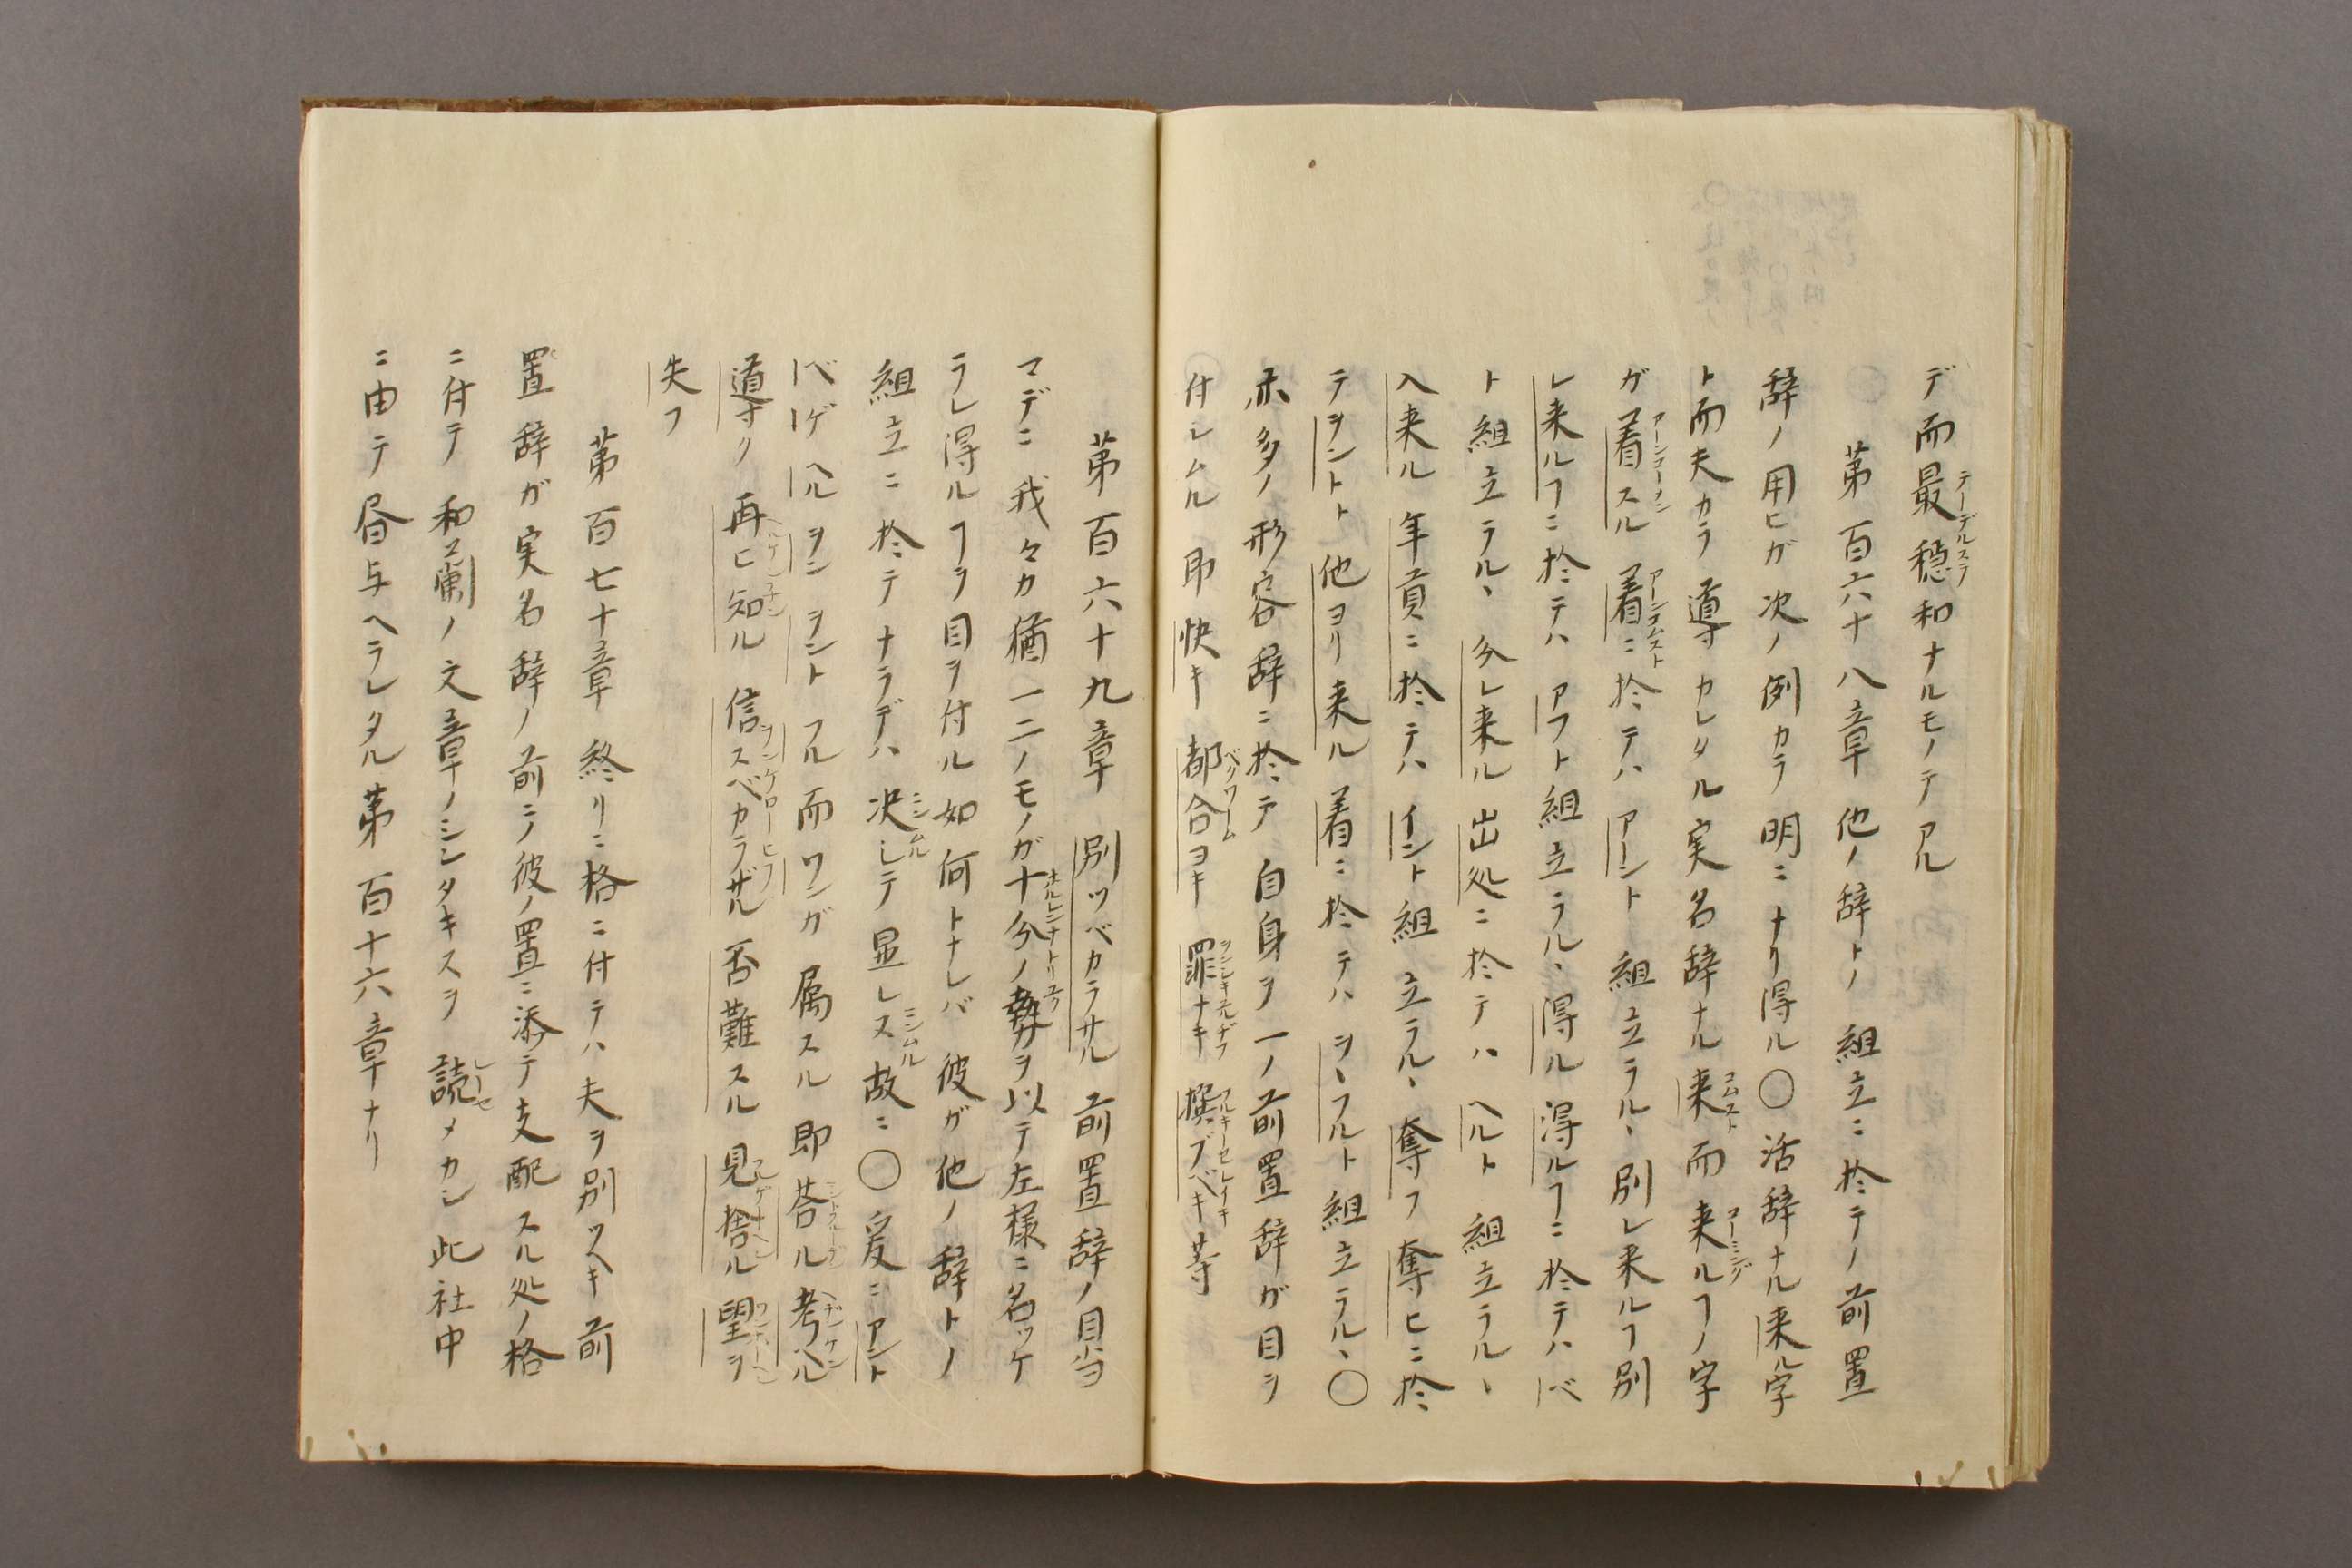 デ而最穏和ナルモノテアル
テーデルスラ
第百六十八章 他ノ辞トノ組立ニ於テノ前置
辞ノ用ヒガ次ノ例カラ明ニナリ得ル〇活辞ナル来ル字
ト而夫カラ導カレタル実名辞ナル来而来ルヿノ字
コムスト コーミング
ガ着スル着ニ於テハアーント組立ラル、別レ来ルヿ別
アーンコーメン アーンコムスト
レ来ルヿニ於テハアフト組立ラル、得ル得ルヿニ於テハベ
ト組立ラル、分レ来ル出処ニ於テハヘルト組立ラル、
入来ル年貢ニ於テハイント組立ラル、奪フ奪ヒニ於
テヲントト他ヨリ来ル着ニ於テハヲ、フルト組立ラル、〇
ホ多ノ形容辞ニ於テ自身ヲ一ノ前置辞ガ目ヲ
付シムル即快キ都合ヨキ罪ナキ撰ブベキ等
ベクワーム
第百六十九章 別ツベカラサル前置辞ノ目当
マデニ我々カ猶一二ノモノガ十分ノ勢ヲ以テ左様ニ名ツケ
ラレ得ルヿヲ目ヲ付ル如何トナレバ彼ガ他ノ辞トノ
組立ニ於テナラデハ决シテ显レス故ニ〇爰ニアント
ニンムル ミンムル
ベゲヘルヲンヲントフル而ワンガ属スル即荅ル考ル
導ク再ヒ知ル信スベカラザル否難スル見捨ル望ヲ
失フ
第百七十章 終リニ格ニ付テハ夫ヲ別ツヘキ前
置辞ガ実名辞ノ前ニテ彼ノ置ニ添テ支配スル処ノ格
ニ付テ和蘭ノ文章ノシンタキスヲ読メカシ此社中
レーセ
ニ由テ昼与ヘラレタル第百十六章ナリ